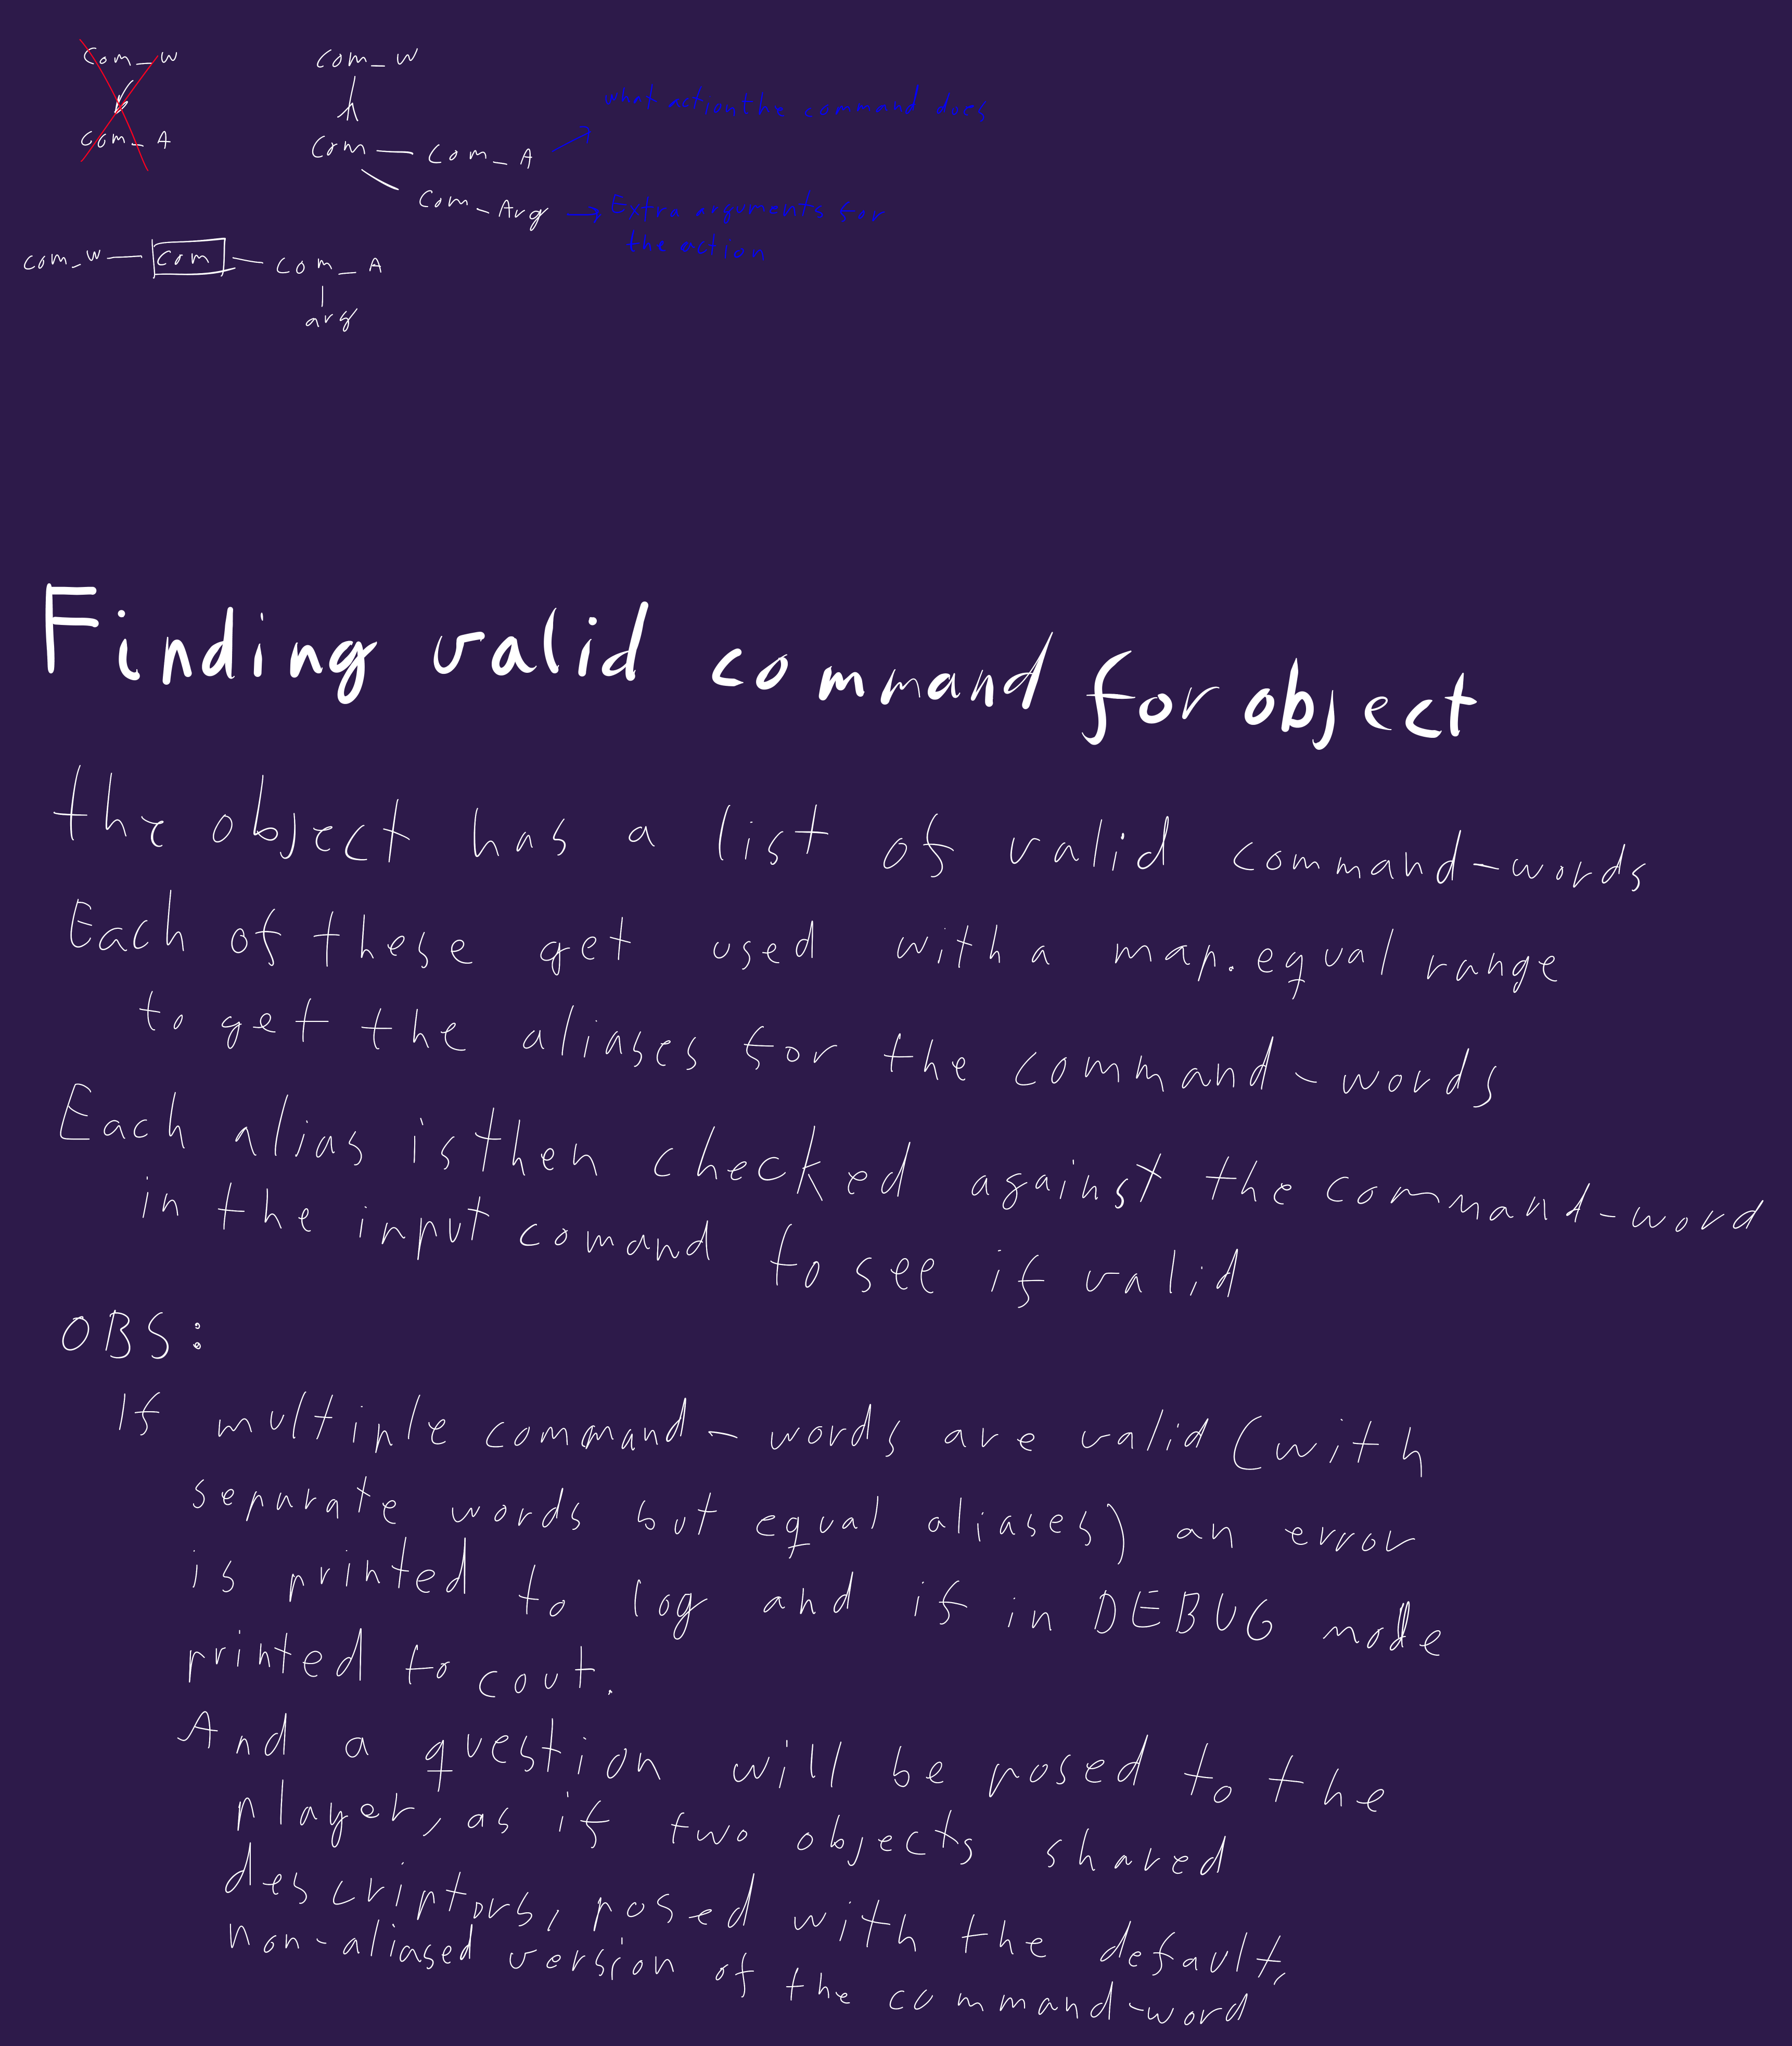 Com_W
Com_A
Com_W
Com — Com_A
Com_Arg
what action the command does
Extra arguments for
the action
Com_W — Com — Com_A
arg
Finding valid command for object
the object has a list of valid command-words
Each of these get used with a map.equal range
to get the aliases for the command-words
Each alias is then checked against the command-word
in the input comand to see if valid
OBS:
If multiple command-words are valid (with
separate words but equal aliases) an error
is printed to log and if in DEBUG mode
printed to cout.
And a question will be posed to the
player, as if two objects shared
descriptors, posed with the default,
non-aliased version of the command-word